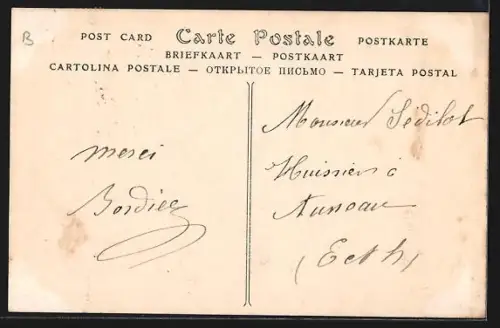 B
POST CARD Carte Postale POSTKARTE
BRIEFKAART — POSTKAART
CARTOLINA POSTALE — ОТКРЫТОЕ ПИСЬМО — TARJETA POSTAL
merci
Bordier
Monsieur Sédillot
Huissier à
Auneau
(E et L)